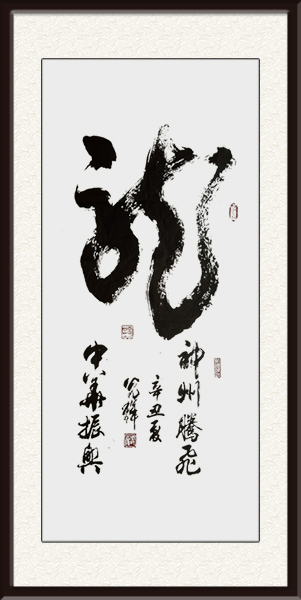 龍
神州騰飛
中華振興
辛丑夏